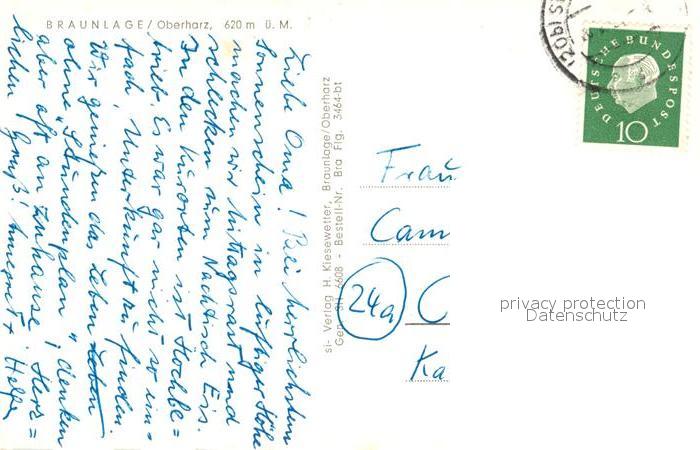 BRAUNLAGE/Oberharz, 620 m Ü. M.
Liebe Oma! Bei herrlichstem
Sonnenschein in luftiger Höhe
machen wir Mittagsrast und
schlecken zum Nachtisch Eis.
In den Kurorten ist Hochbe=
trieb. Es war gar nicht so ein=
fach, Unterkunft zu finden.
Wir genießen das Leben
ohne „Stundenplan", denken
aber oft an Zuhause! Herz=
lichen Gruß! Annegret + Helga
si- Verlag H. Kiesewetter, Braunlage/Oberharz
Gen. 6608 - Bestell-Nr. Bra Flg. 3464-bt
Frau
Cam
24a
C
Ka
(20b)
DEUTSCHE BUNDESPOST
10
privacy protection
Datenschutz